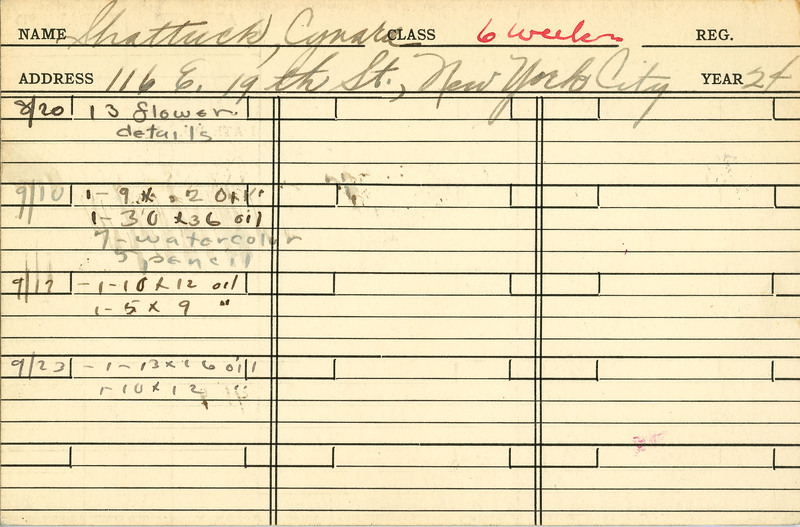 NAME Shattuck, Cynara CLASS 6 weeks REG.
ADDRESS 116 E. 19th St., New York City YEAR 24
8/20 13 flower
details
9/10 1-9 x 12 oil
1-30 x 36 oil
7-watercolor
5 pencil
9/17 -1-10 x 12 oil
1-5 x 9 "
9/23 -1-13 x 16 oil
1-10 x 12 "